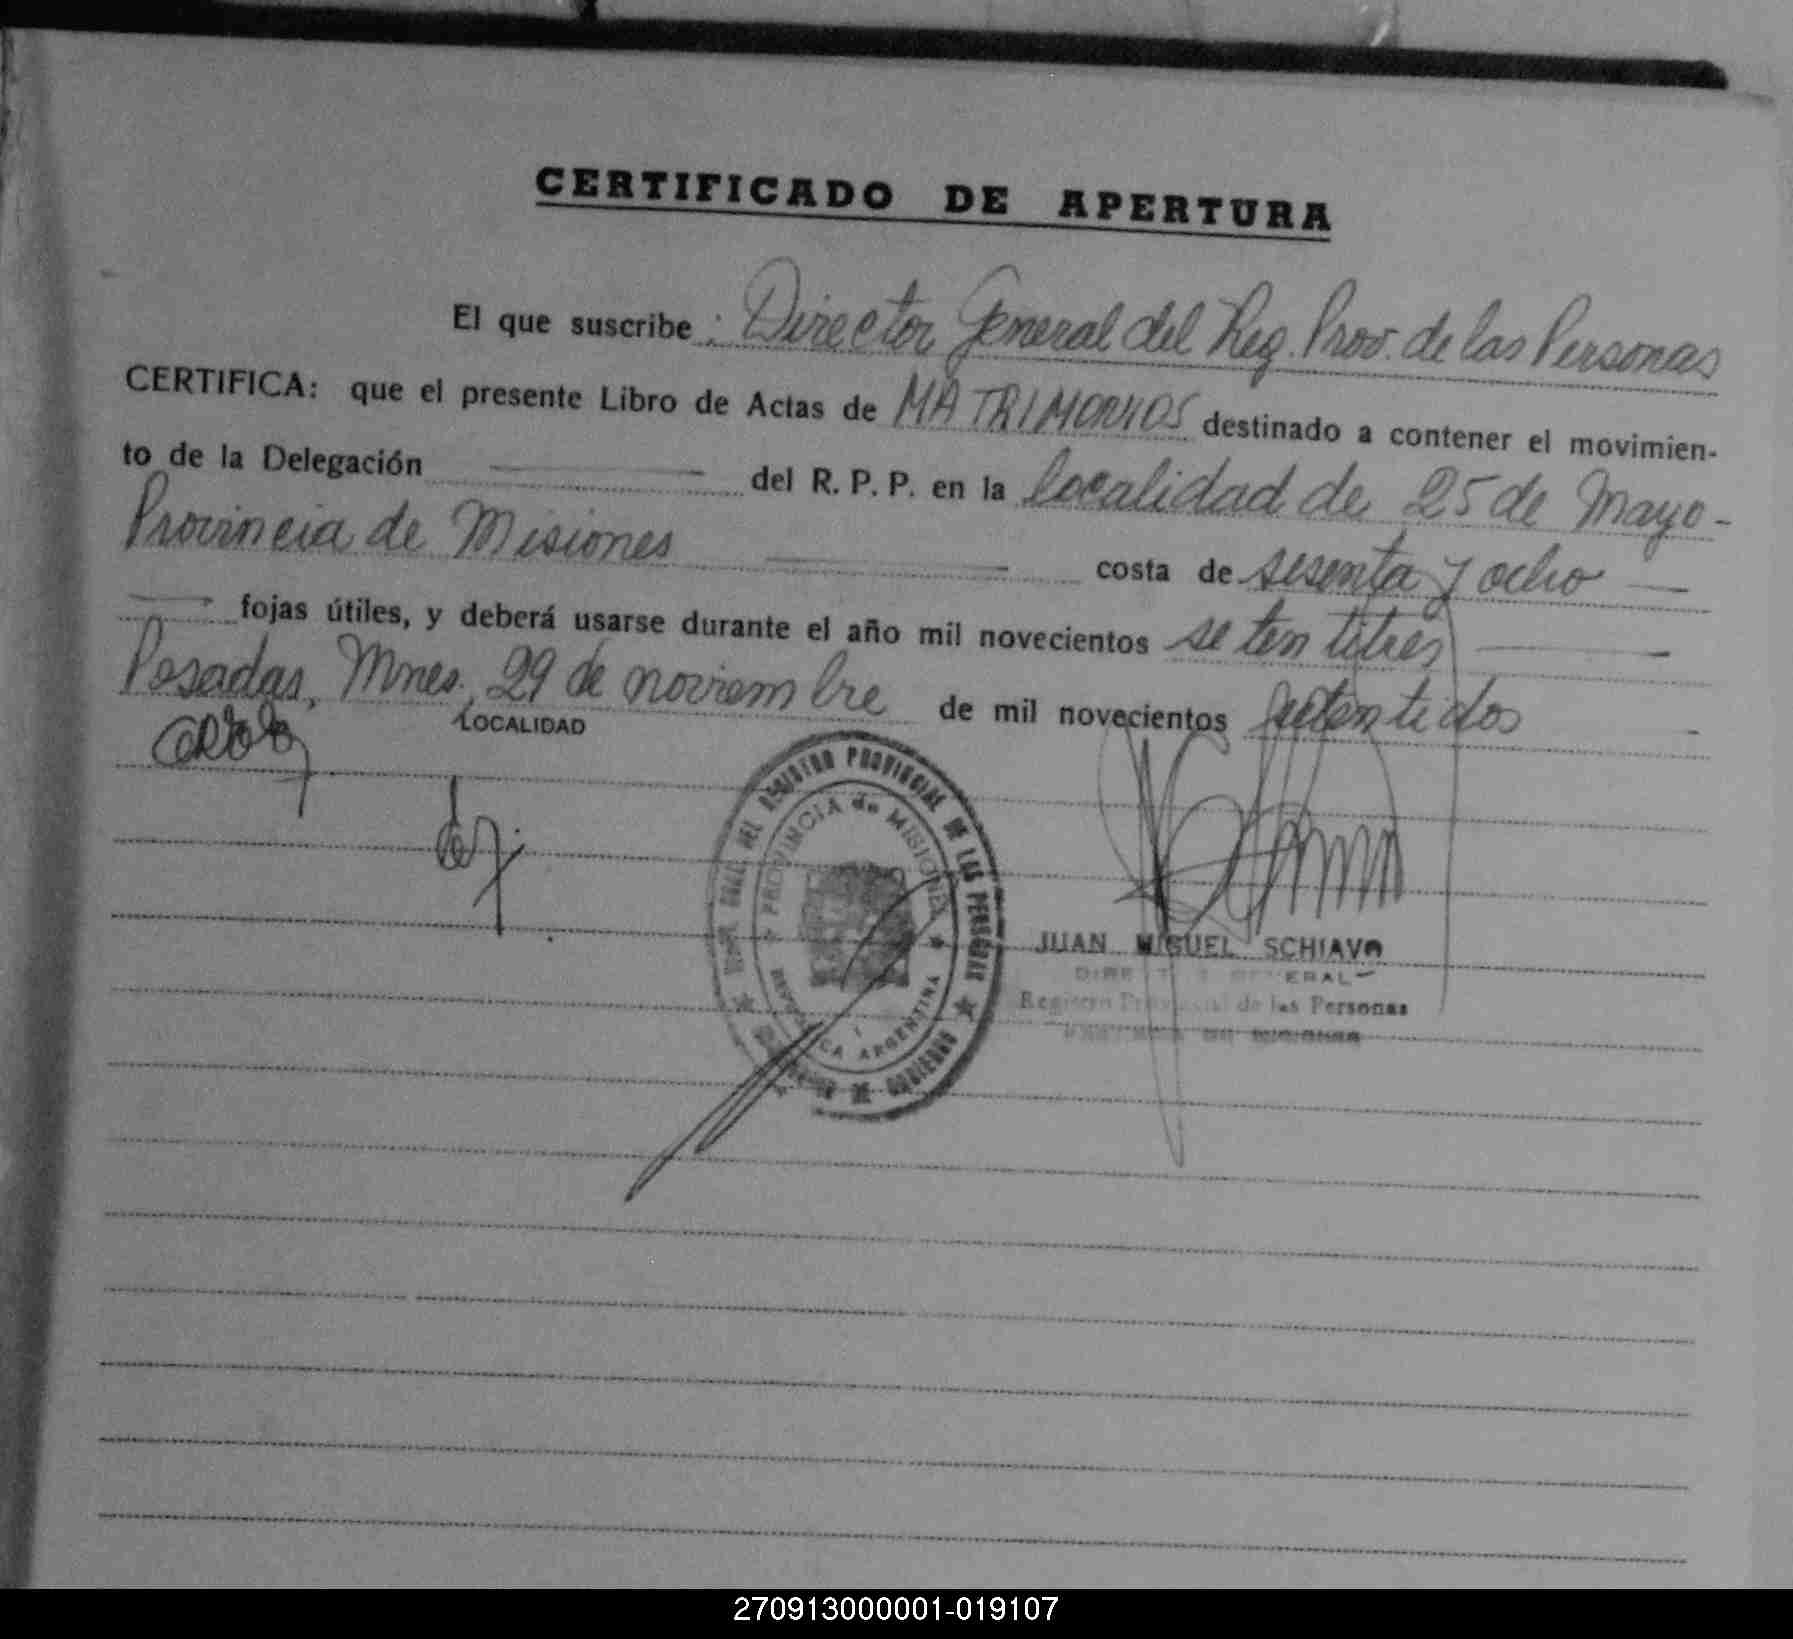 CERTIFICADO DE APERTURA
El que suscribe : Director General del Reg. Prov. de las Personas
CERTIFICA: que el presente Libro de Actas de MATRIMONIOS destinado a contener el movimien-
to de la Delegación del R. P. P. en la localidad de 25 de Mayo -
Provincia de Misiones costa de sesenta y ocho
fojas útiles, y deberá usarse durante el año mil novecientos setentitres
Posadas, Mnes. 29 de noviembre de mil novecientos setentidos
LOCALIDAD
DEL REGISTRO PROVINCIAL DE LAS PERSONAS
PROVINCIA de MISIONES
REPUBLICA ARGENTINA
DE GOBIERNO
JUAN MIGUEL SCHIAVO
DIRECTOR GENERAL
Registro Provincial de las Personas
270913000001-019107